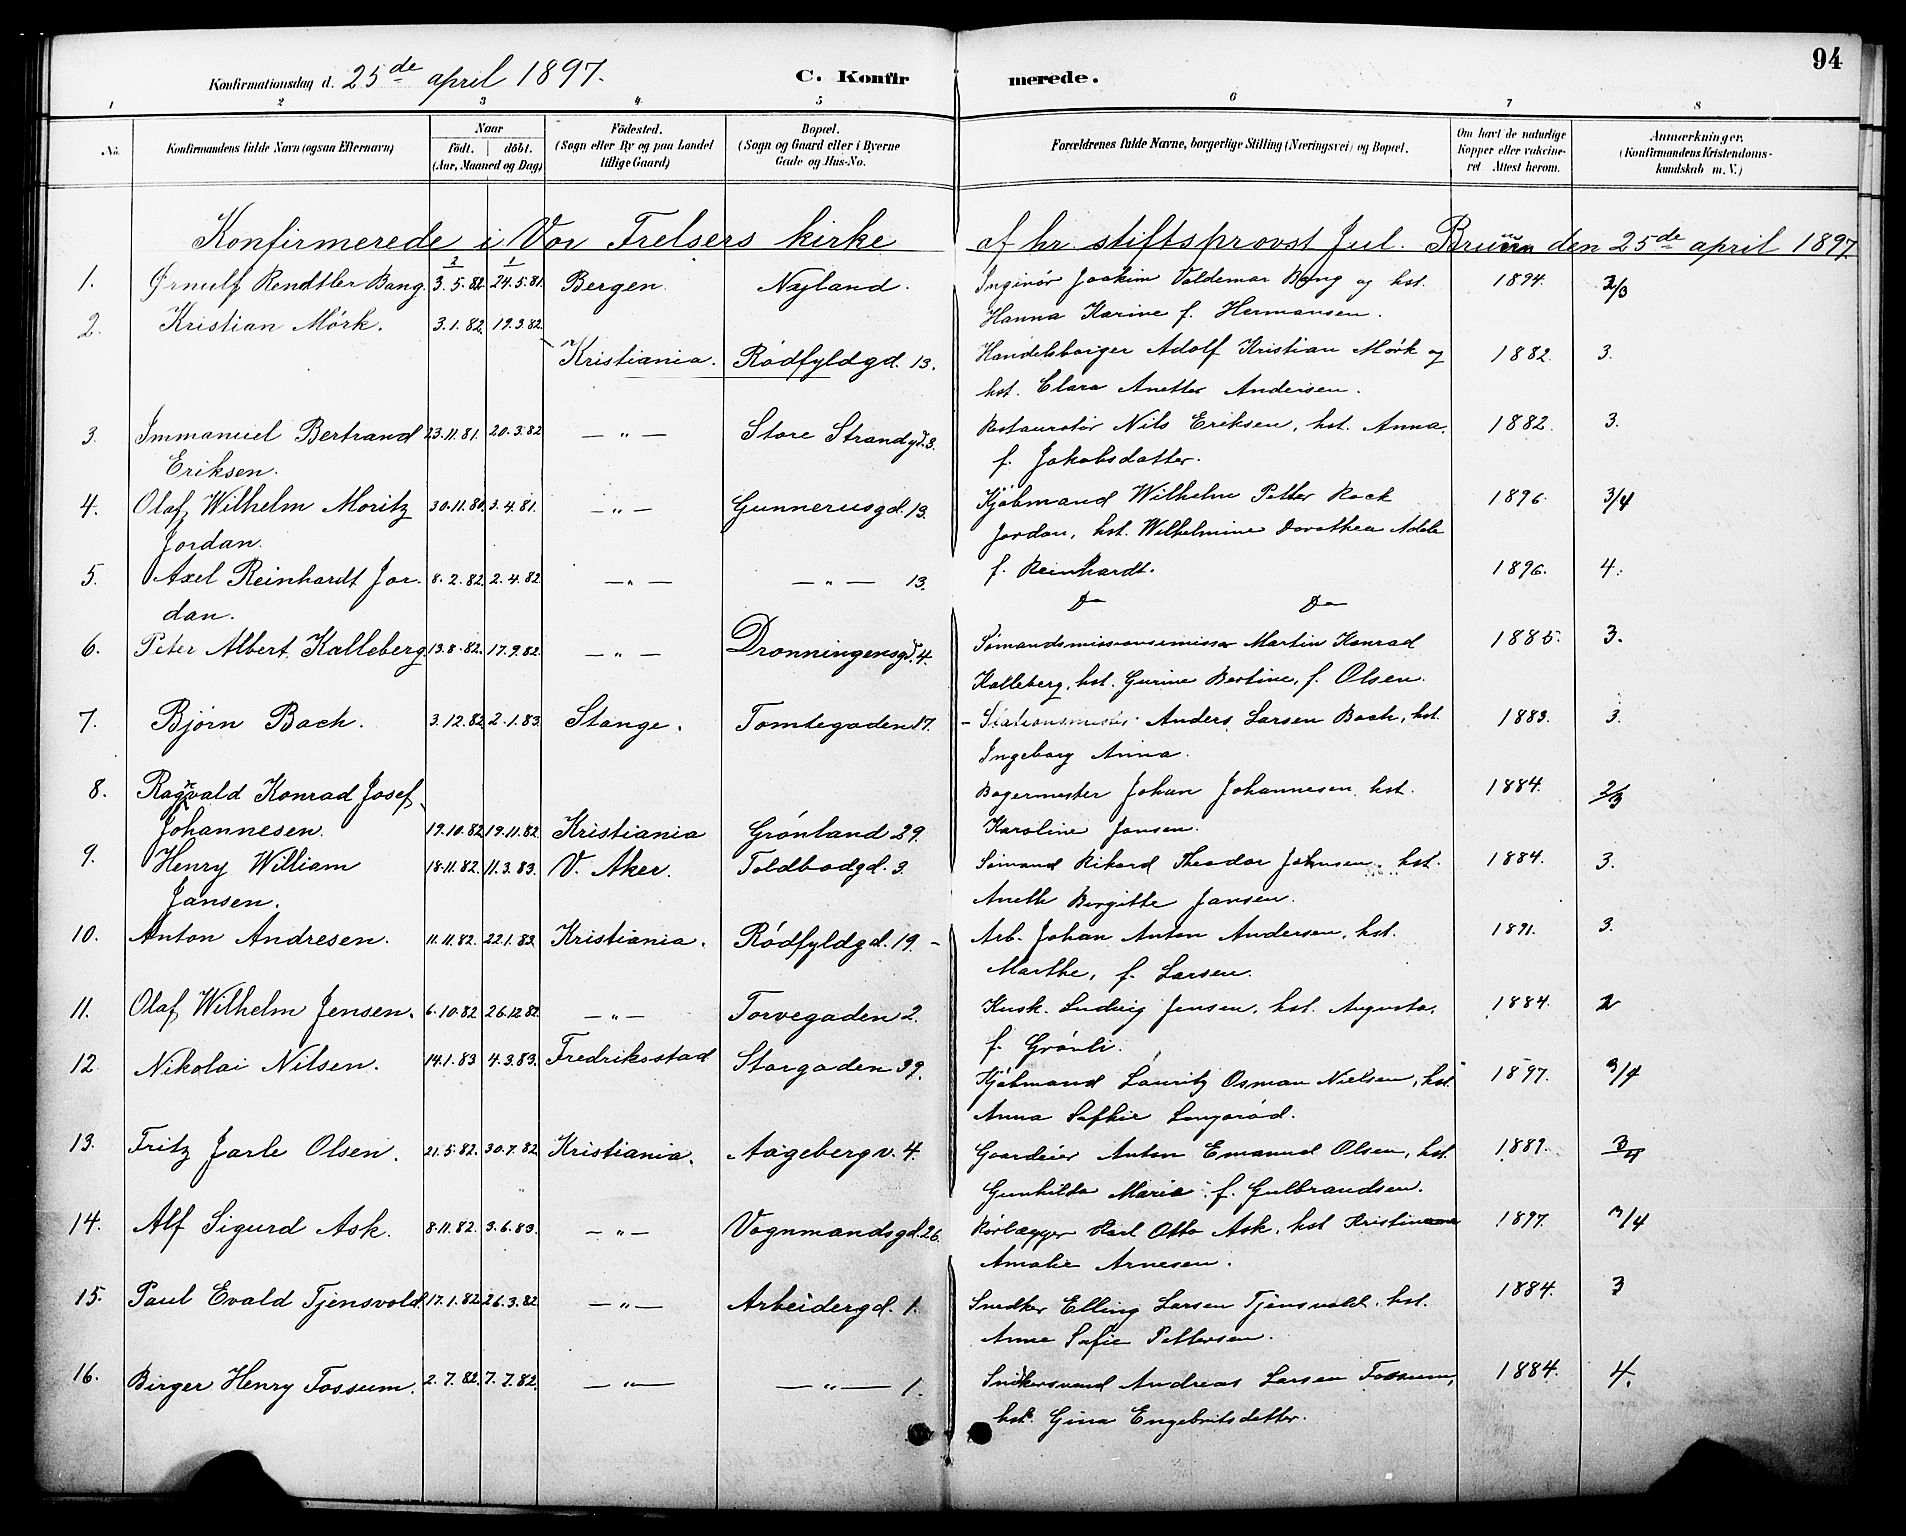 94
Konfirmationsdag d. 25de april 1897. C. Konfirmerede.
1 2 3 4 5 6 7 8
No. Konfirmandens fulde Navn (ogsaa Efternavn) Naar Födt. döbt. (Aar, Maaned og Dag) Födested. (Sogn eller By og paa Landet tillige Gaard) Bopæl. (Sogn og Gaard eller i Byerne Gade og Hus-No. Forældrenes fulde Navne, borgerlige Stilling (Næringsvei) og Bopæl. Om havt de naturlige Kopper eller vakcineret Attest herom. Anmærkninger, (Konfirmandens Kristendomskundskab m. V.)
Konfirmerede i Vor Frelsers kirke af hr. stiftsprovst Jul. Bruun den 25de april 1897.
1. Ørnulf Rendtler Bang. 3.5.82 24.5.81. Bergen. Nyland. Inginiør Joakim Valdemar Bang og hst. 1894. 2/3
Hanna Karine f. Hermansen.
2. Kristian Mörk. 3.1.82. 19.3.82.
Kristiania. Rödfyldgd. 13. Handelsborger Adolf Kristian Mörk og 1882. 3.
hst. Clara Anette Andersen.
3. Immanuel Bertrand 23.11.81. 20.3.82 — " — Store Strandgd. 3. Restauratör Nils Eriksen, hst. Anna, 1882. 3.
Eriksen. f. Jakobsdatter.
4. Olaf Wilhelm Moritz 30.11.80. 3.4.81. — " — Gunnerusgd. 13. Kjöbmand Wilhelm Petter Rack 1896. 3/4
Jordan. Jordan, hst. Wilhelmine Dorothea Adele
5. Axel Reinhardt Jor- 8.2.82. 2.4.82 — " — — " — 13. f. Reinhardt. 1896. 4.
dan. Do Do
6. Peter Albert Kalleberg. 13.8.82. 17.9.82. — " — Dronningensgd. 4. Martin Konrad 1885. 3.
Kalleberg, hst. Gurine Bertine, f. Olsen.
7. Björn Bach. 3.12.82. 2.1.83. Stange. Tomtegaden 17. Stationsmester Anders Larsen Bach, hst. 1883. 3.
Ingeborg Anna.
8. Ragvald Konrad Josef Bagermester Johan Johannesen, hst. 1884. 2/3
Johannesen. 19.10.82 19.11.82. Kristiania Grönland 29. Karoline Jansen.
9. Henry William 18.11.82. 11.3.83. V. Aker. Toldbodgd. 3. Sömand Rikard Theodor Johnsen, hst. 1884. 3.
Jansen. Anette Birgitte Jansen.
10. Anton Andresen. 11.11.82. 22.1.83. Kristiania. Rödfyldgd. 19. Arb. Johan Anton Andersen, hst. 1891. 3.
Marthe, f. Larsen.
11. Olaf Wilhelm Jensen. 6.10.82 26.12.82. — " — Torvegaden 2. Kusk. Ludvig Jensen, hst. Augusta, 1884. 2
f. Grönli.
12. Nikolai Nilsen. 14.1.83 4.3.83. Fredriksstad Storgaden 39. Kjöbmand Lauritz Osman Nielsen, hst. 1897. 3/4
Anna Sofhie
13. Fritz Jarle Olsen. 21.5.82. 30.7.82. Kristiania. Aageberg v. 4. Gaardeier Anton Emanuel Olsen, hst. 1889. 3/4
Gunhilda Maria f. Gulbrandsen.
14. Alf Sigurd Ask. 8.11.82. 3.6.83. — " — Vognmandsgd. 26. Rörlægger Karl Otto Ask, hst 1897. 3/4
Amalie Arnesen.
15. Paul Evald Tjensvold. 17.1.82. 26.3.82 — " — Arbeidergd. 1. Snedker Elling Larsen Tjensvold, hst. 1884. 3
Anne Sofie Pettersen.
16. Birger Henry Fossum. 2.7.82. 7.7.82. — " — — " — 1. Snikersvend Andreas Larsen Fossum, 1884. 4.
hst. Gina Engebritsdatter.